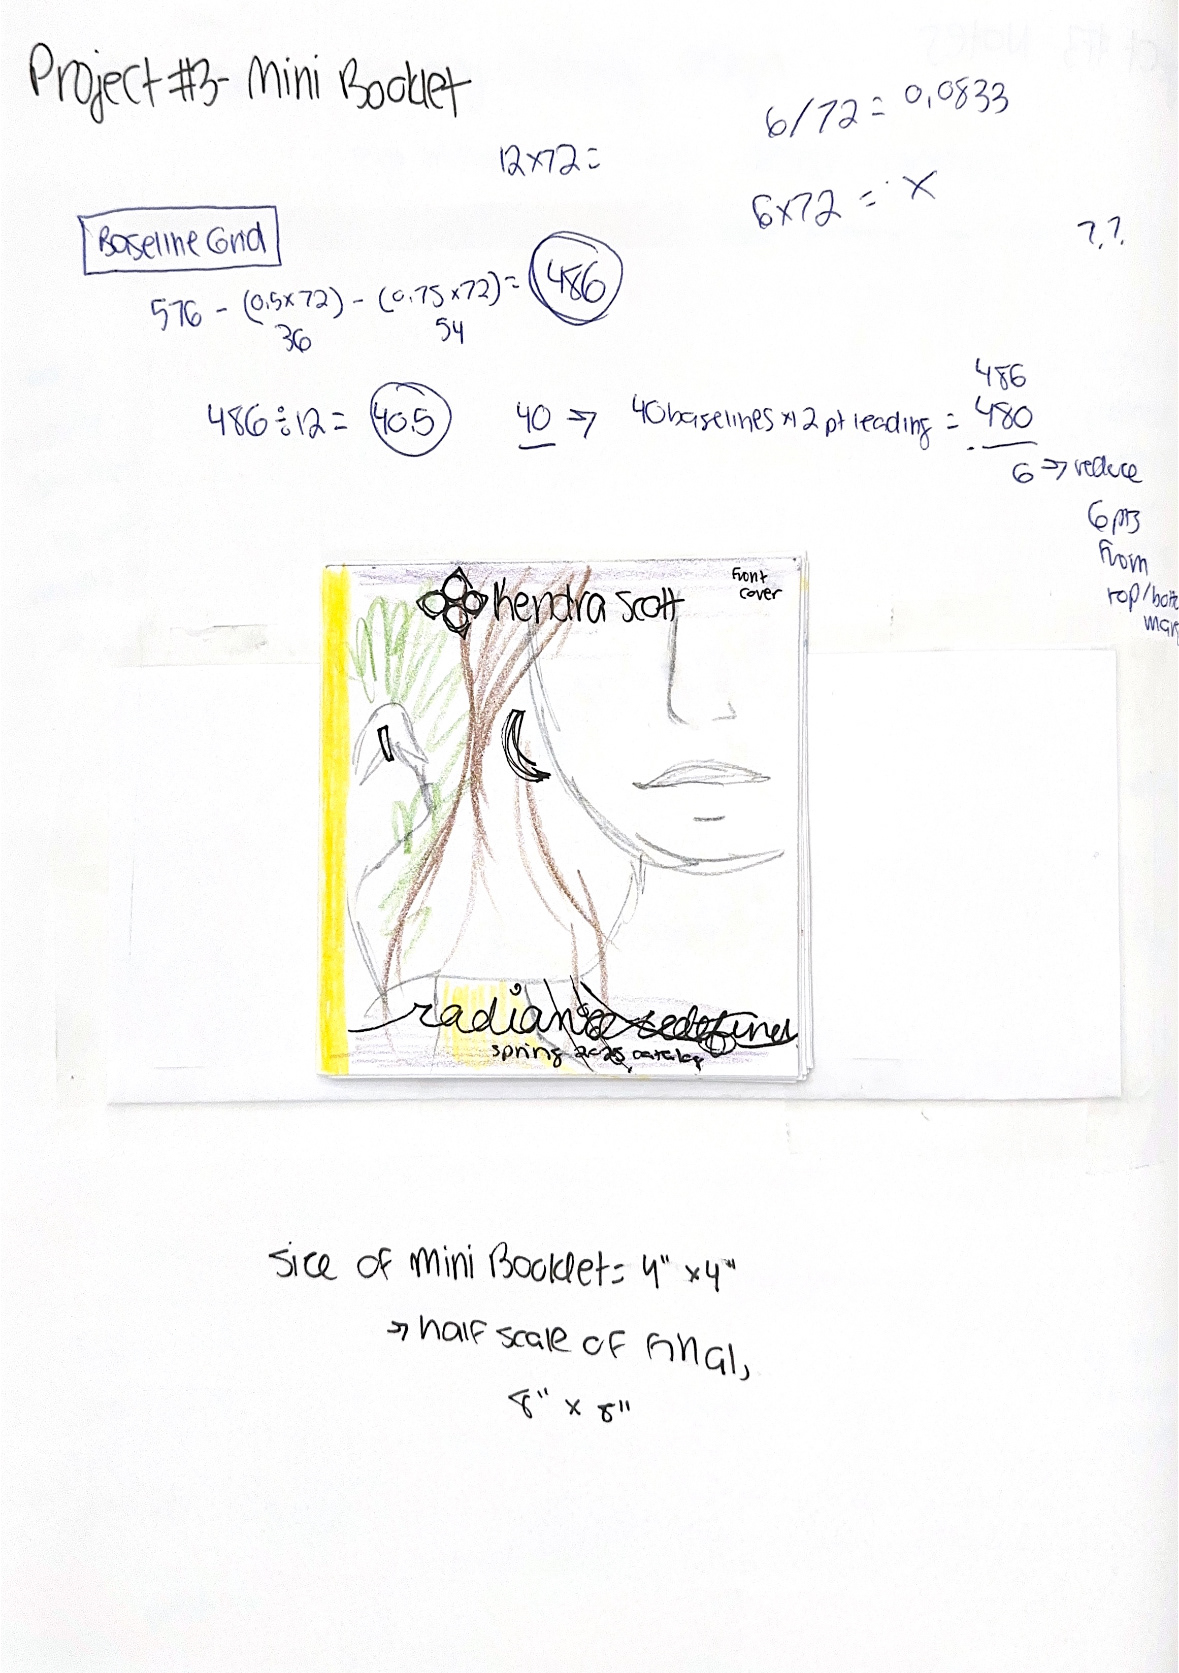 Project #3- Mini Booklet
6/72 = 0.0833
12x72 =
6x72 = x
??
Baseline Grid
576 - (0.5x72) - (0.75x72) = 486
36
54
486 ÷ 12 = 40.5
40 → 40 baselines x 12 pt leading = 480
486
6 → reduce
6pts
from
top/bott
mar
front
cover
Kendra Scott
radiance redefined
spring 2025 catalog
size of Mini Booklet = 4" x 4"
→ half scale of final,
8" x 8"